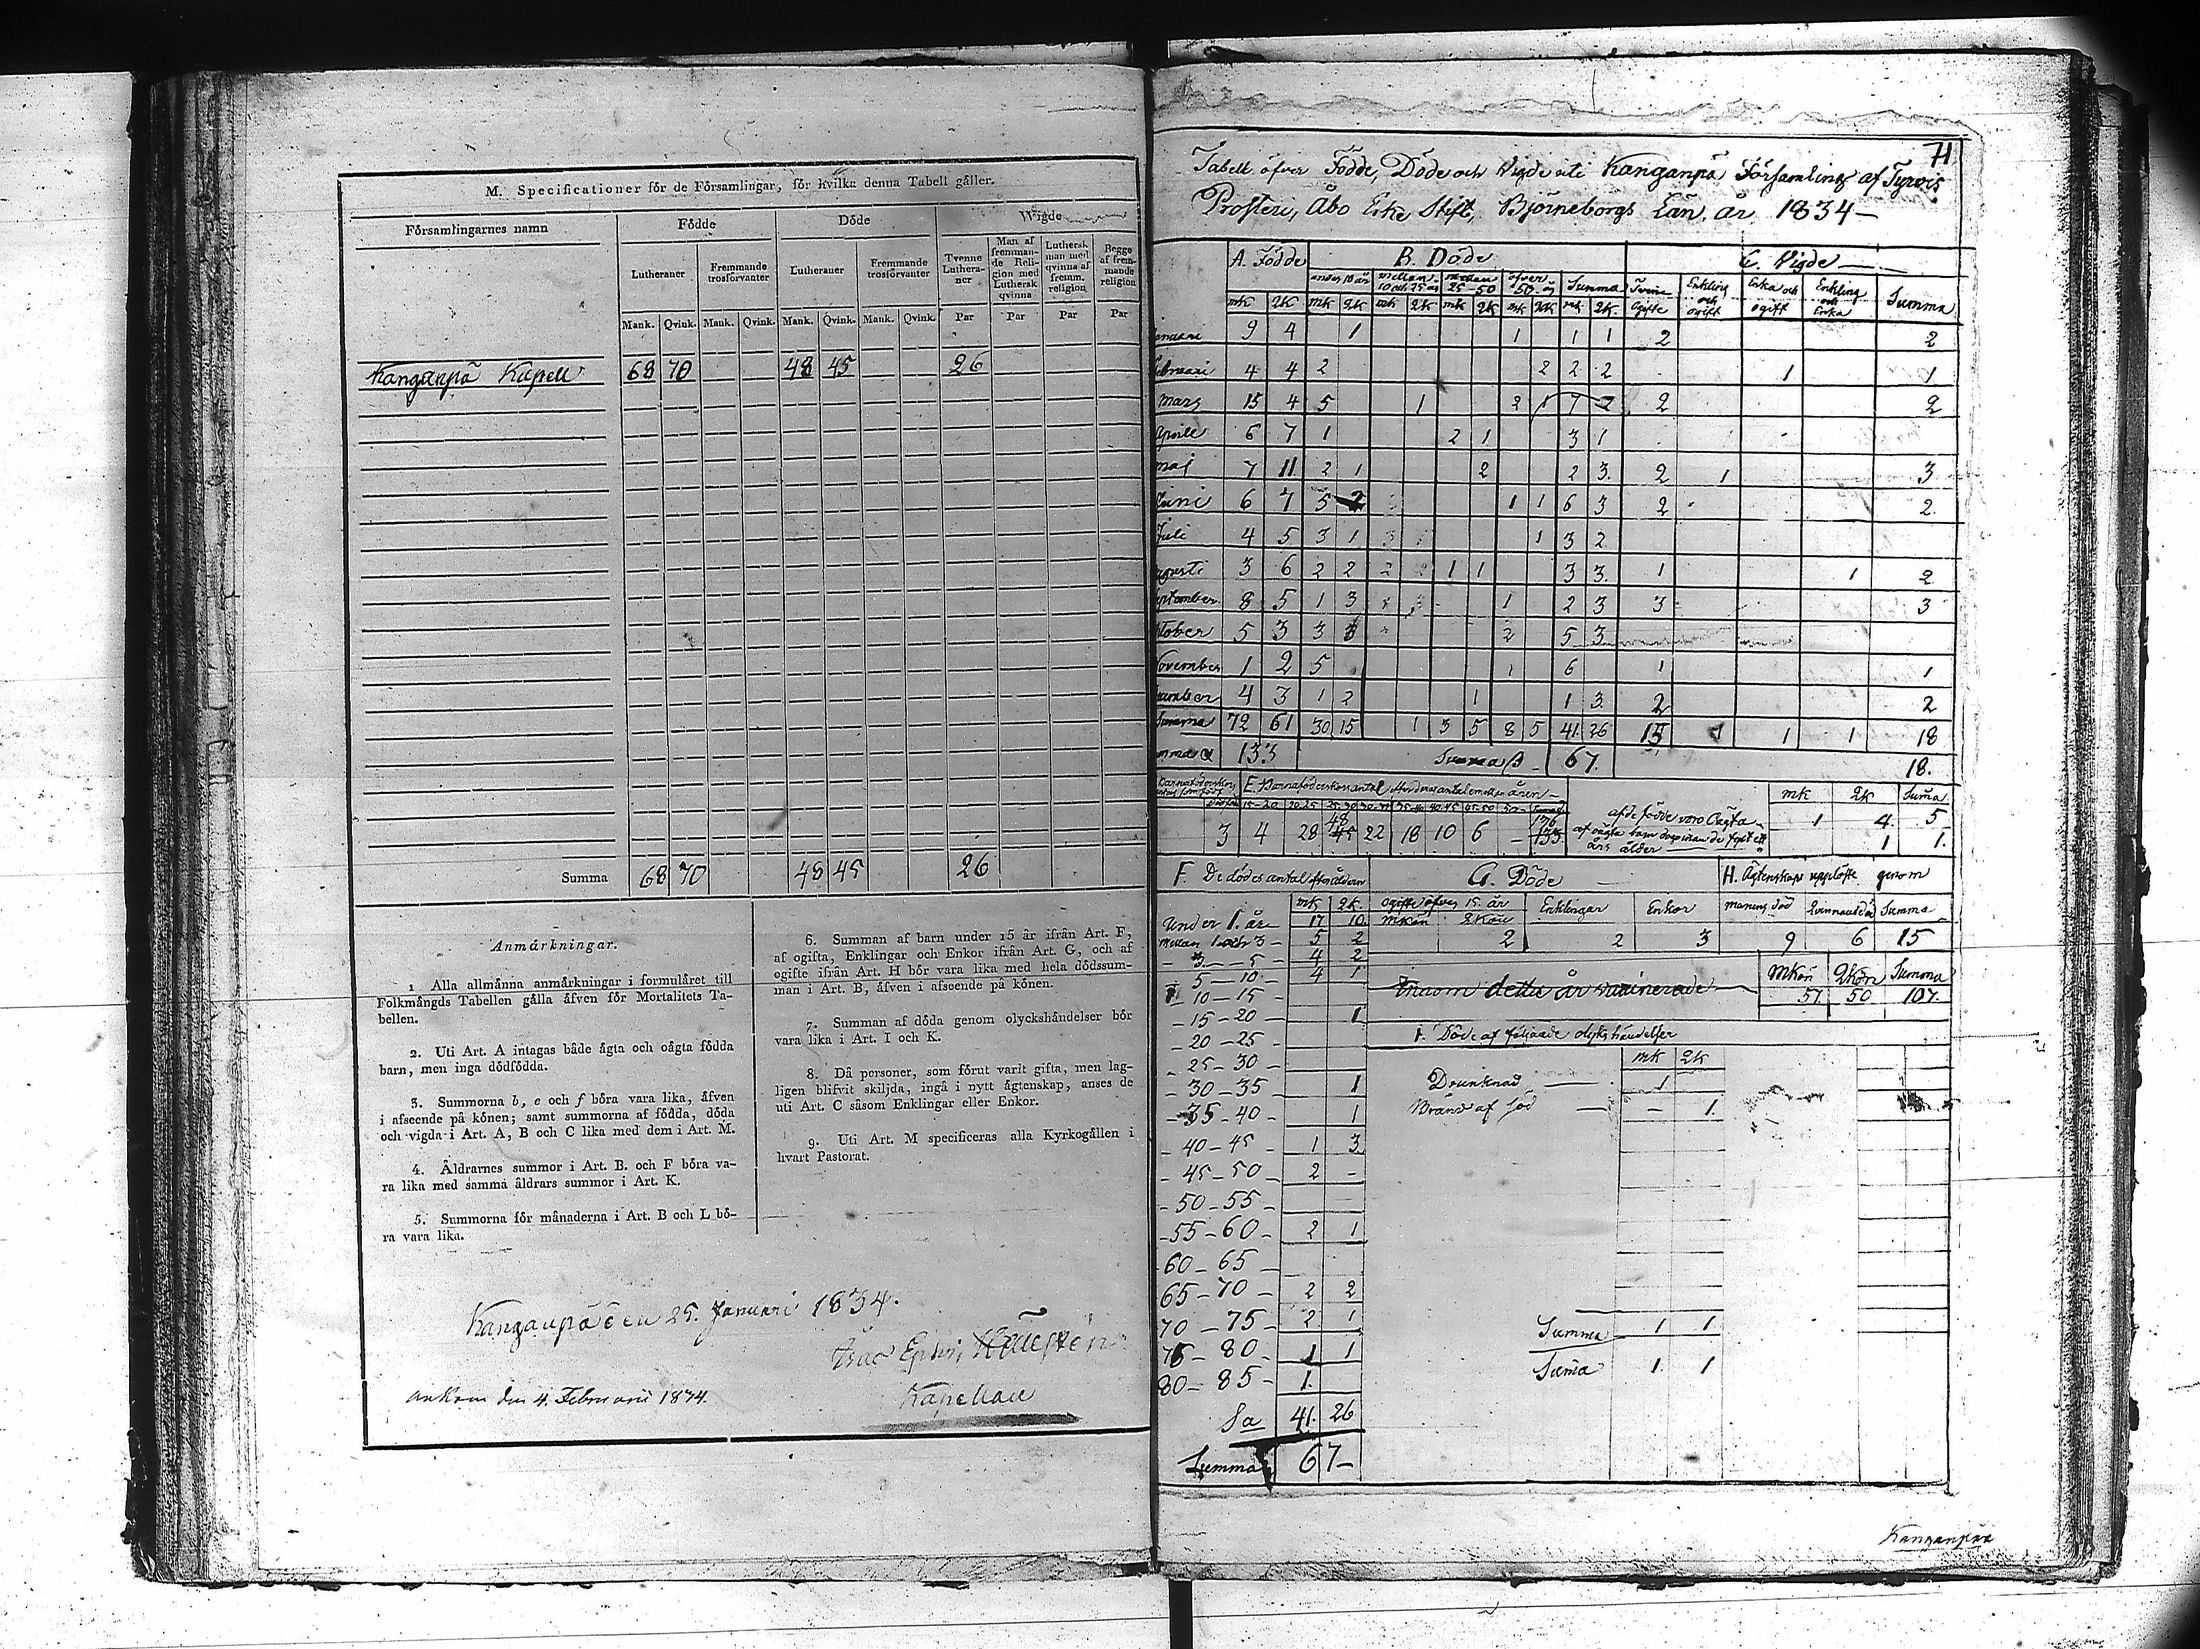 M. Specificationer för de Församlingar, för hvilka denna Tabell gäller.
Församlingarnes namn
Födde
Döde
Wigde
Lutheraner
Fremmande trosförvanter
Lutheraner
Fremmande trosförvanter
Tvenne Lutheraner
Man af fremmande Religion med Luthersk qvinna
Luthersk man med qvinna af fremm. religion
Begge af fremmande religion
Mank. Qvink. Mank. Qvink. Mank. Qvink. Mank. Qvink. Par Par Par Par
Kanganpä Kapell 68 70 48 45 26
Summa 68 70 48 45 26
Anmärkningar.
1 Alla allmänna anmärkningar i formuläret till
Folkmängds Tabellen gälla äfven för Mortalitets Ta-
bellen.
2. Uti Art. A intagas både ägta och oägta födda
barn, men inga dödfödda.
3. Summorna b, e och f böra vara lika, äfven
i afseende på könen; samt summorna af födda, döda
och vigda i Art. A, B och C lika med dem i Art. M.
4. Åldrarnes summor i Art. B. och F böra va-
ra lika med samma åldrars summor i Art. K.
5. Summorna för månaderna i Art. B och L bö-
ra vara lika.
6. Summan af barn under 15 år ifrån Art. F,
af ogifta, Enklingar och Enkor ifrån Art. G, och af
ogifte ifrån Art. H bör vara lika med hela dödssum-
man i Art. B, äfven i afseende på könen.
7. Summan af döda genom olyckshändelser bör
vara lika i Art. I och K.
8. Då personer, som förut varit gifta, men lag-
ligen blifvit skiljda, ingå i nytt ägtenskap, anses de
uti Art. C såsom Enklingar eller Enkor.
9. Uti Art. M specificeras alla Kyrkogällen i
hvart Pastorat.
Kanganpä den 25. Januari 1834.
Kapellan
ankom den 4. Februarii 1834.
71
Tabell öfver Födde, Döde och Vigde uti Kanganpä Församling af Tyrvis
Prosteri, Åbo Erke Stift, Björneborgs Län, år 1834
A. Födde B. Döde C. Vigde
under 10 år mellan 10 och 25 år mellan 25-50 öfver 50 år Summa Tvenne Ogifte Enkling och ogift Enka och ogift Enkling och Enka Summa
mk 2k mk 2k mk 2k mk 2k mk 2k mk 2k
anuari 9 4 1 1 1 1 2 2
ebruari 4 4 2 2 2 2 1 1
mars 15 4 5 1 2 1 7 2 2 2
Aprill 6 7 1 2 1 3 1
maj 7 11 2 1 2 2 3 2 1 3
Juni 6 7 5 2 1 1 6 3 2 2
Juli 4 5 3 1 1 3 2
gusti 3 6 2 2 1 1 3 3 1 1 2
eptember 8 5 1 3 1 2 3 3 3
ktober 5 3 3 3 2 5 3
November 1 2 5 1 6 1 1
cember 4 3 1 2 1 1 3 2 2
Summa 72 61 30 15 1 3 5 8 5 41 26 15 1 1 1 18
mma a 133 Summa b 67. 18.
E. Barnaföderskors antal
15-20 20-25 25-30 30-35 35-40 40-45 45-50 50- Summa
48 136
3 4 28 45 22 18 10 6 - 133
mk 2k Suma
af de födde voro Oägta 1 4 5
års ålder 1 1.
F. De dödes antal efter åldern
mk 2k
Under 1. år 17 10
mellan 1 och 3 5 2
3 - 5 4 2
5 - 10 4 1
10 - 15
15 - 20 1
20 - 25
25 - 30
30 - 35 1
35 - 40 1
40 - 45 1 3
45 - 50 2 -
50 - 55
55 - 60 2 1
60 - 65
65 - 70 2 2
70 - 75 2 1
75 - 80 1 1
80 - 85 1.
Sa 41. 26
Summa 67
G. Döde
ogifte öfver 15 år Enklingar Enkor
mkön 2kön
2 2 3
H. Ägtenskap upplöste genom
manens död Qvinnans död Summa
9 6 15
mkön 2kön Summa
Inom detta år vaccinerade 57 50 107.
I. Döde af följande olyks händelser
mk 2k
Drunknad 1
Bränd af - 1
Summa 1 1
Suma 1 1
Kanganpää